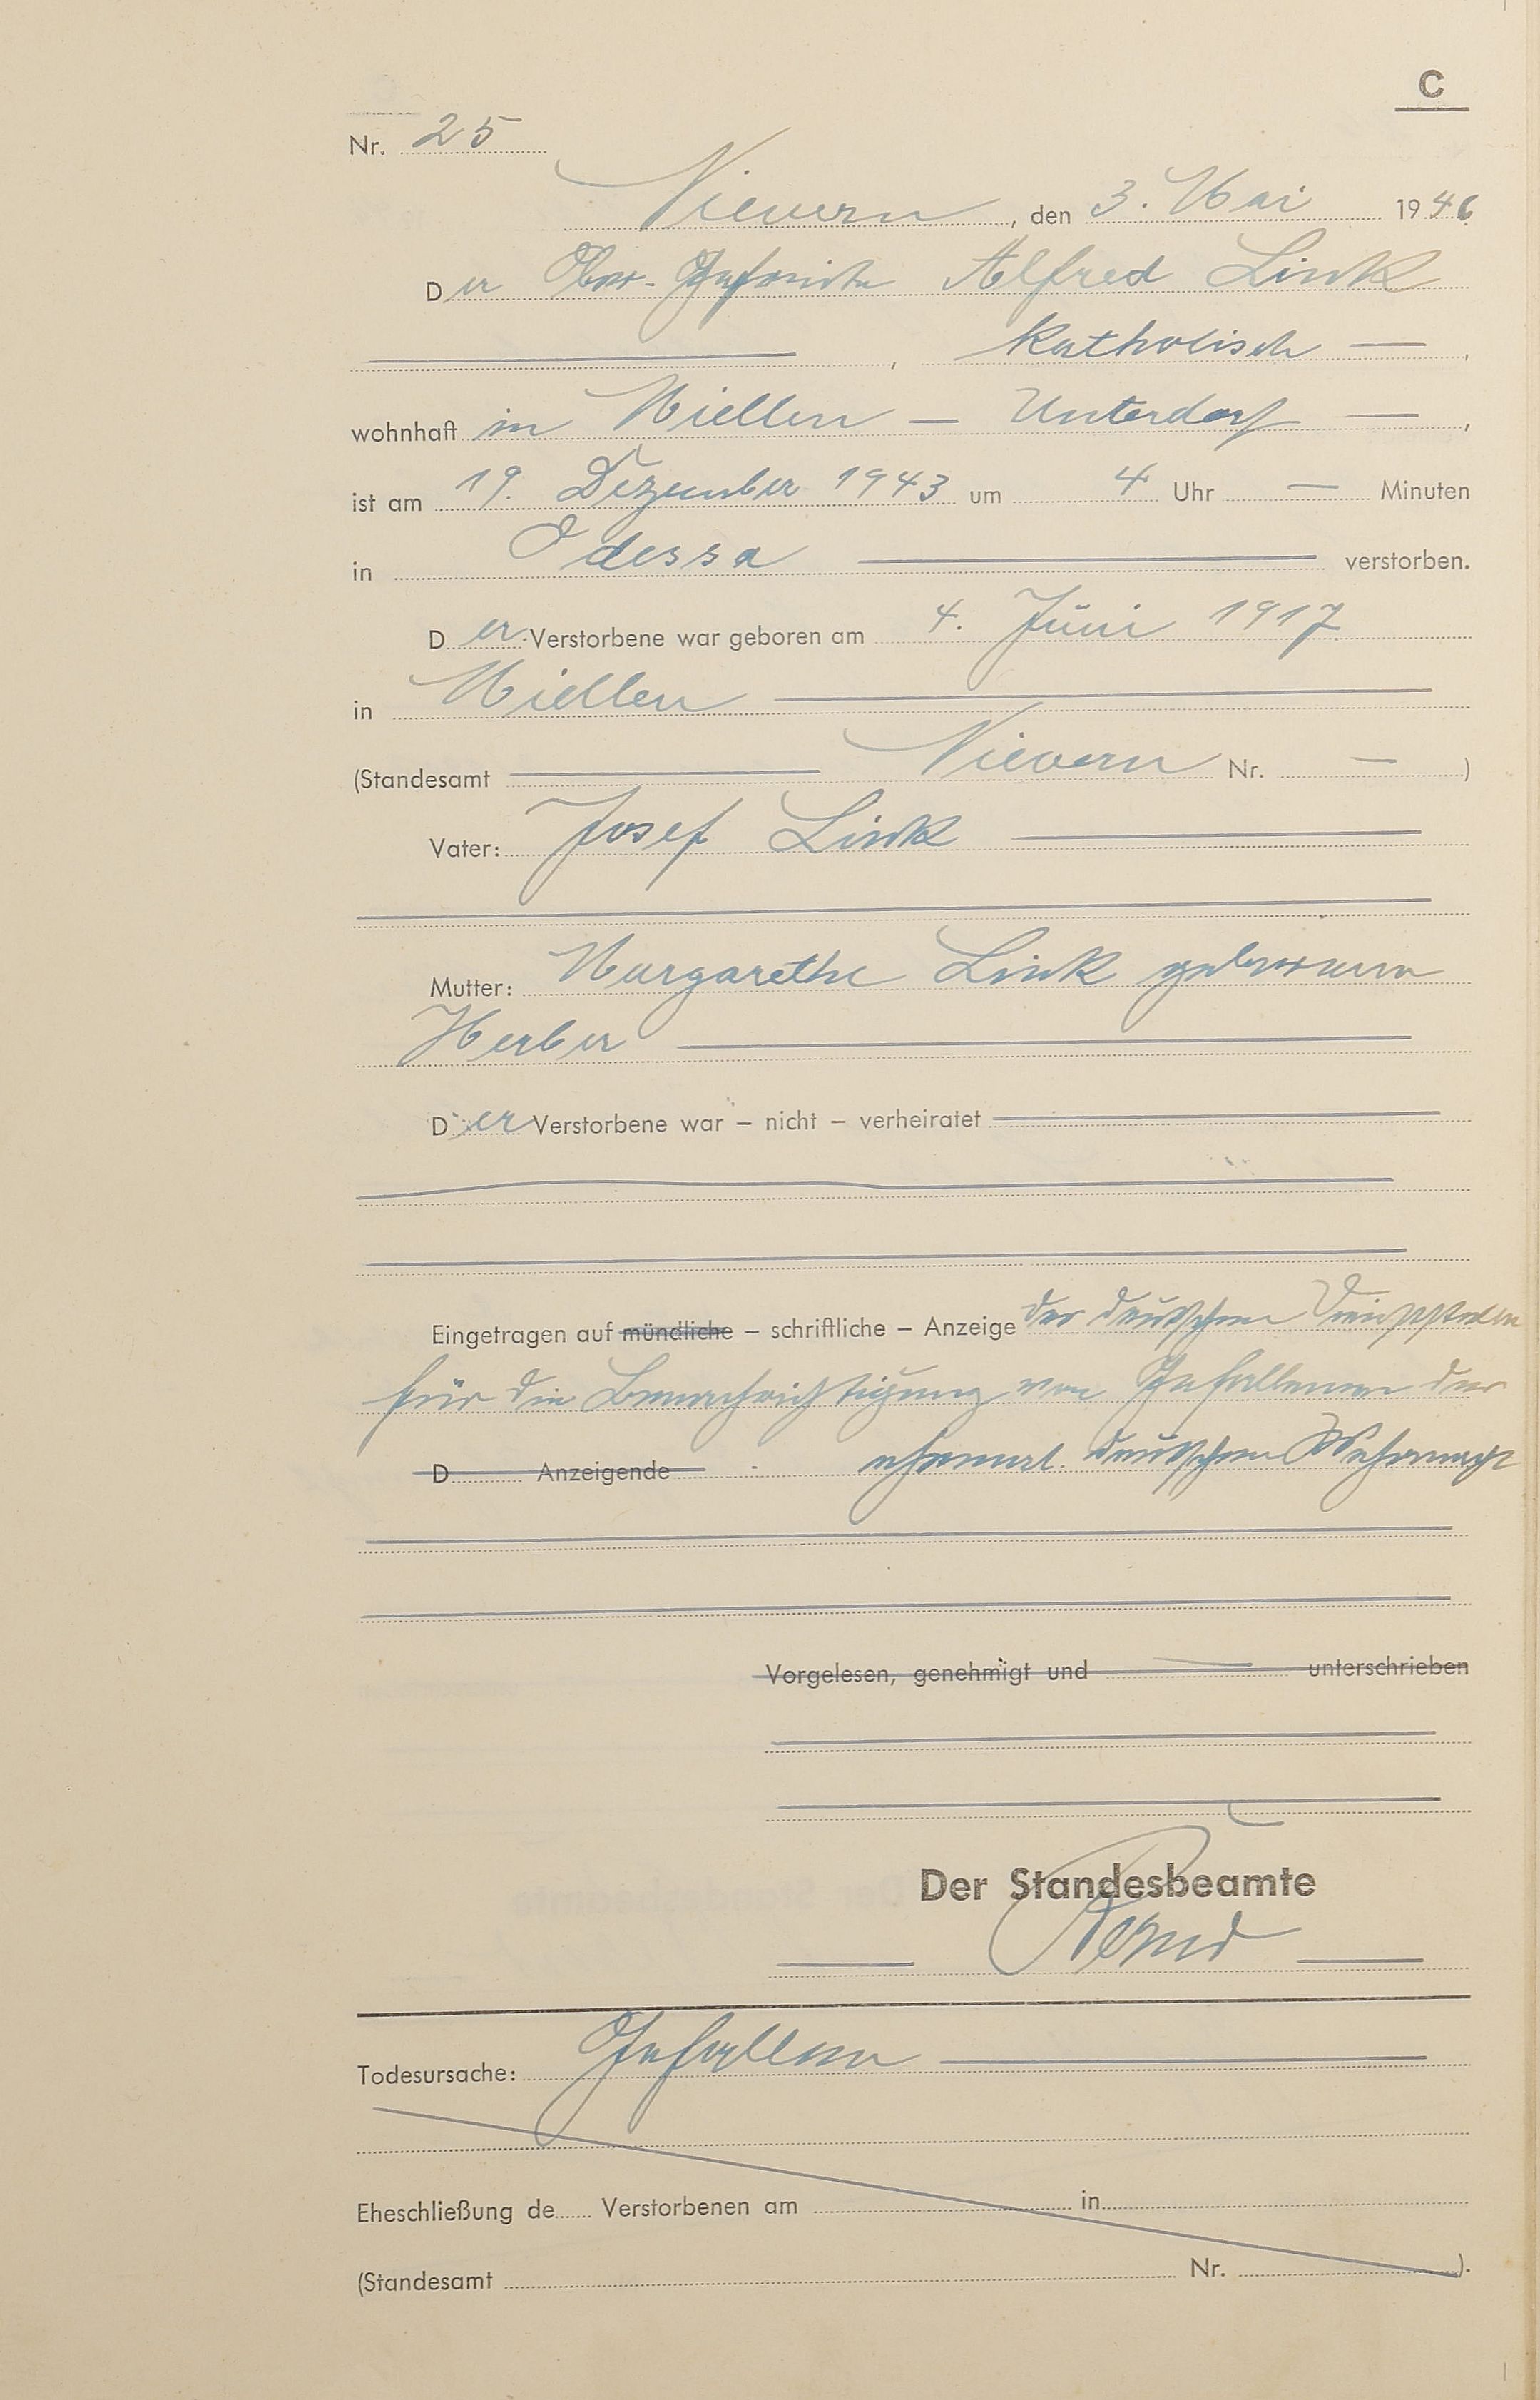 C
Nr. 25
Nievern, den 3. Mai 1946
Der Ober-Gefreite Alfred Link
, katholisch —,
wohnhaft in Miellen — Unterdorf —,
ist am 19. Dezember 1943 um 4 Uhr — Minuten
in Odessa — verstorben.
Der Verstorbene war geboren am 4. Juni 1917
in Miellen —
(Standesamt — Nievern Nr. —)
Vater: Josef Link —
Mutter: Margarethe Link geborene
Herber —
Der Verstorbene war – nicht – verheiratet
Eingetragen auf mündliche – schriftliche – Anzeige der deutschen
für die Benachrichtigung von Gefallenen der
D Anzeigende ehemal. deutschen Wehrmacht
Vorgelesen, genehmigt und — unterschrieben
Der Standesbeamte
Todesursache: Gefallen —
Eheschließung de Verstorbenen am in
(Standesamt Nr. ).